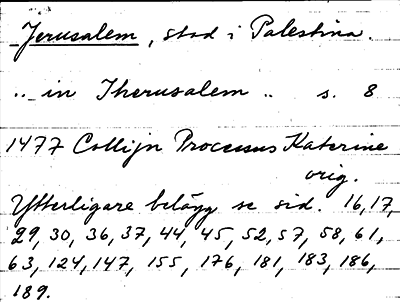 Jerusalem, stad i Palestina.
.. in Therusalem .. s. 8
1477 Collijn Processus Katerine
orig.
Ytterligare belägg se sid. 16, 17,
29, 30, 36, 37, 44, 45, 52, 57, 58, 61,
63, 124, 147, 155, 176, 181, 183, 186,
189.